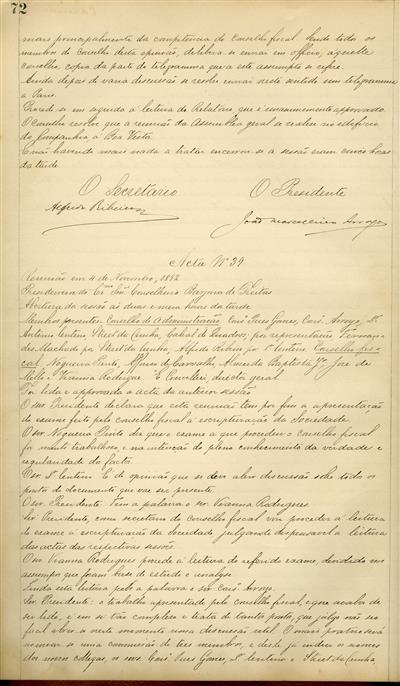 72
mais principalmente da competencia do conselho fiscal. Sendo todos os
membros do Conselho desta opinião, delibera-se enviar em officio, áquelle
conselho, copia da parte do telegramma que a este assumpto se refere.
Ainda depois de varia discussão se resolve enviar neste sentido um telegramma
a Paris.
Procede-se em seguida á leitura do Relatorio, que é unanimemente approvado.
O Conselho resolve que a reunião da Assembléa geral se realise no edificio
da Companhia á Boa Vista.
E não havendo mais nada a tratar encerrou-se a sessão eram cinco horas
da tarde.
O Secretario O Presidente
Alfredo Ribeiro João Marcellino Arroyo
Acta Nº 39
Reunião em 4 de Novembro, 1892
Presidencia do Exmo Snr. Conselheiro de Freitas
Abertura da sessão ás duas e meia horas da tarde
Membros presentes: Conselho de administração, Gomes, Arroyo, Dr.
Antonio Centeno, da Cunha, Cabral de; por representação:
des Machado por da Cunha, Alfredo Ribeiro por Dr. Centeno. Conselho fis-
cal, Nogueira Pinto, de Carvalho, Almeida Baptista, José de
Mello e Vianna Rodrigues. E., director geral
Foi lida e approvada a acta da anterior sessão.
O snr. Presidente declara que esta reunião tem por fim a apresentação
do exame feito pelo conselho fiscal á escripturação da Sociedade.
O snr. Nogueira Pinto diz que o exame a que procedeu o conselho fiscal
foi muito trabalhoso, e na intenção do pleno conhecimento da verdade e
regularidade do facto.
O snr. Dr. Centeno É de opinião que se deve abrir discussão sobre todos os
pontos do documento que vae ser presente.
O snr. Presidente: Tem a palavra o snr. Vianna Rodrigues
Snr. Presidente, como secretario do conselho fiscal vou proceder á leitura
do exame á escripturação da Sociedade julgando dispensavel a leitura
das actas das respectivas sessões.
O snr. Vianna Rodrigues procede á leitura do referido exame, dividido nos
assumptos que foram base de estudo e analyse.
Finda esta leitura pede a palavra o snr. Arroyo.
Snr. Presidente: o trabalho apresentado pelo conselho fiscal, e que acaba de
ser lido, é em si tão complexo e trata de tantos pontos, que julgo não ser
facil abrir-se neste momento uma discussão util. O mais pratico será
nomear-se uma commissão de tres membros, e desde já indico os nomes
dos meus collegas, os snrs. Gomes, Dr. Centeno e da Cunha,